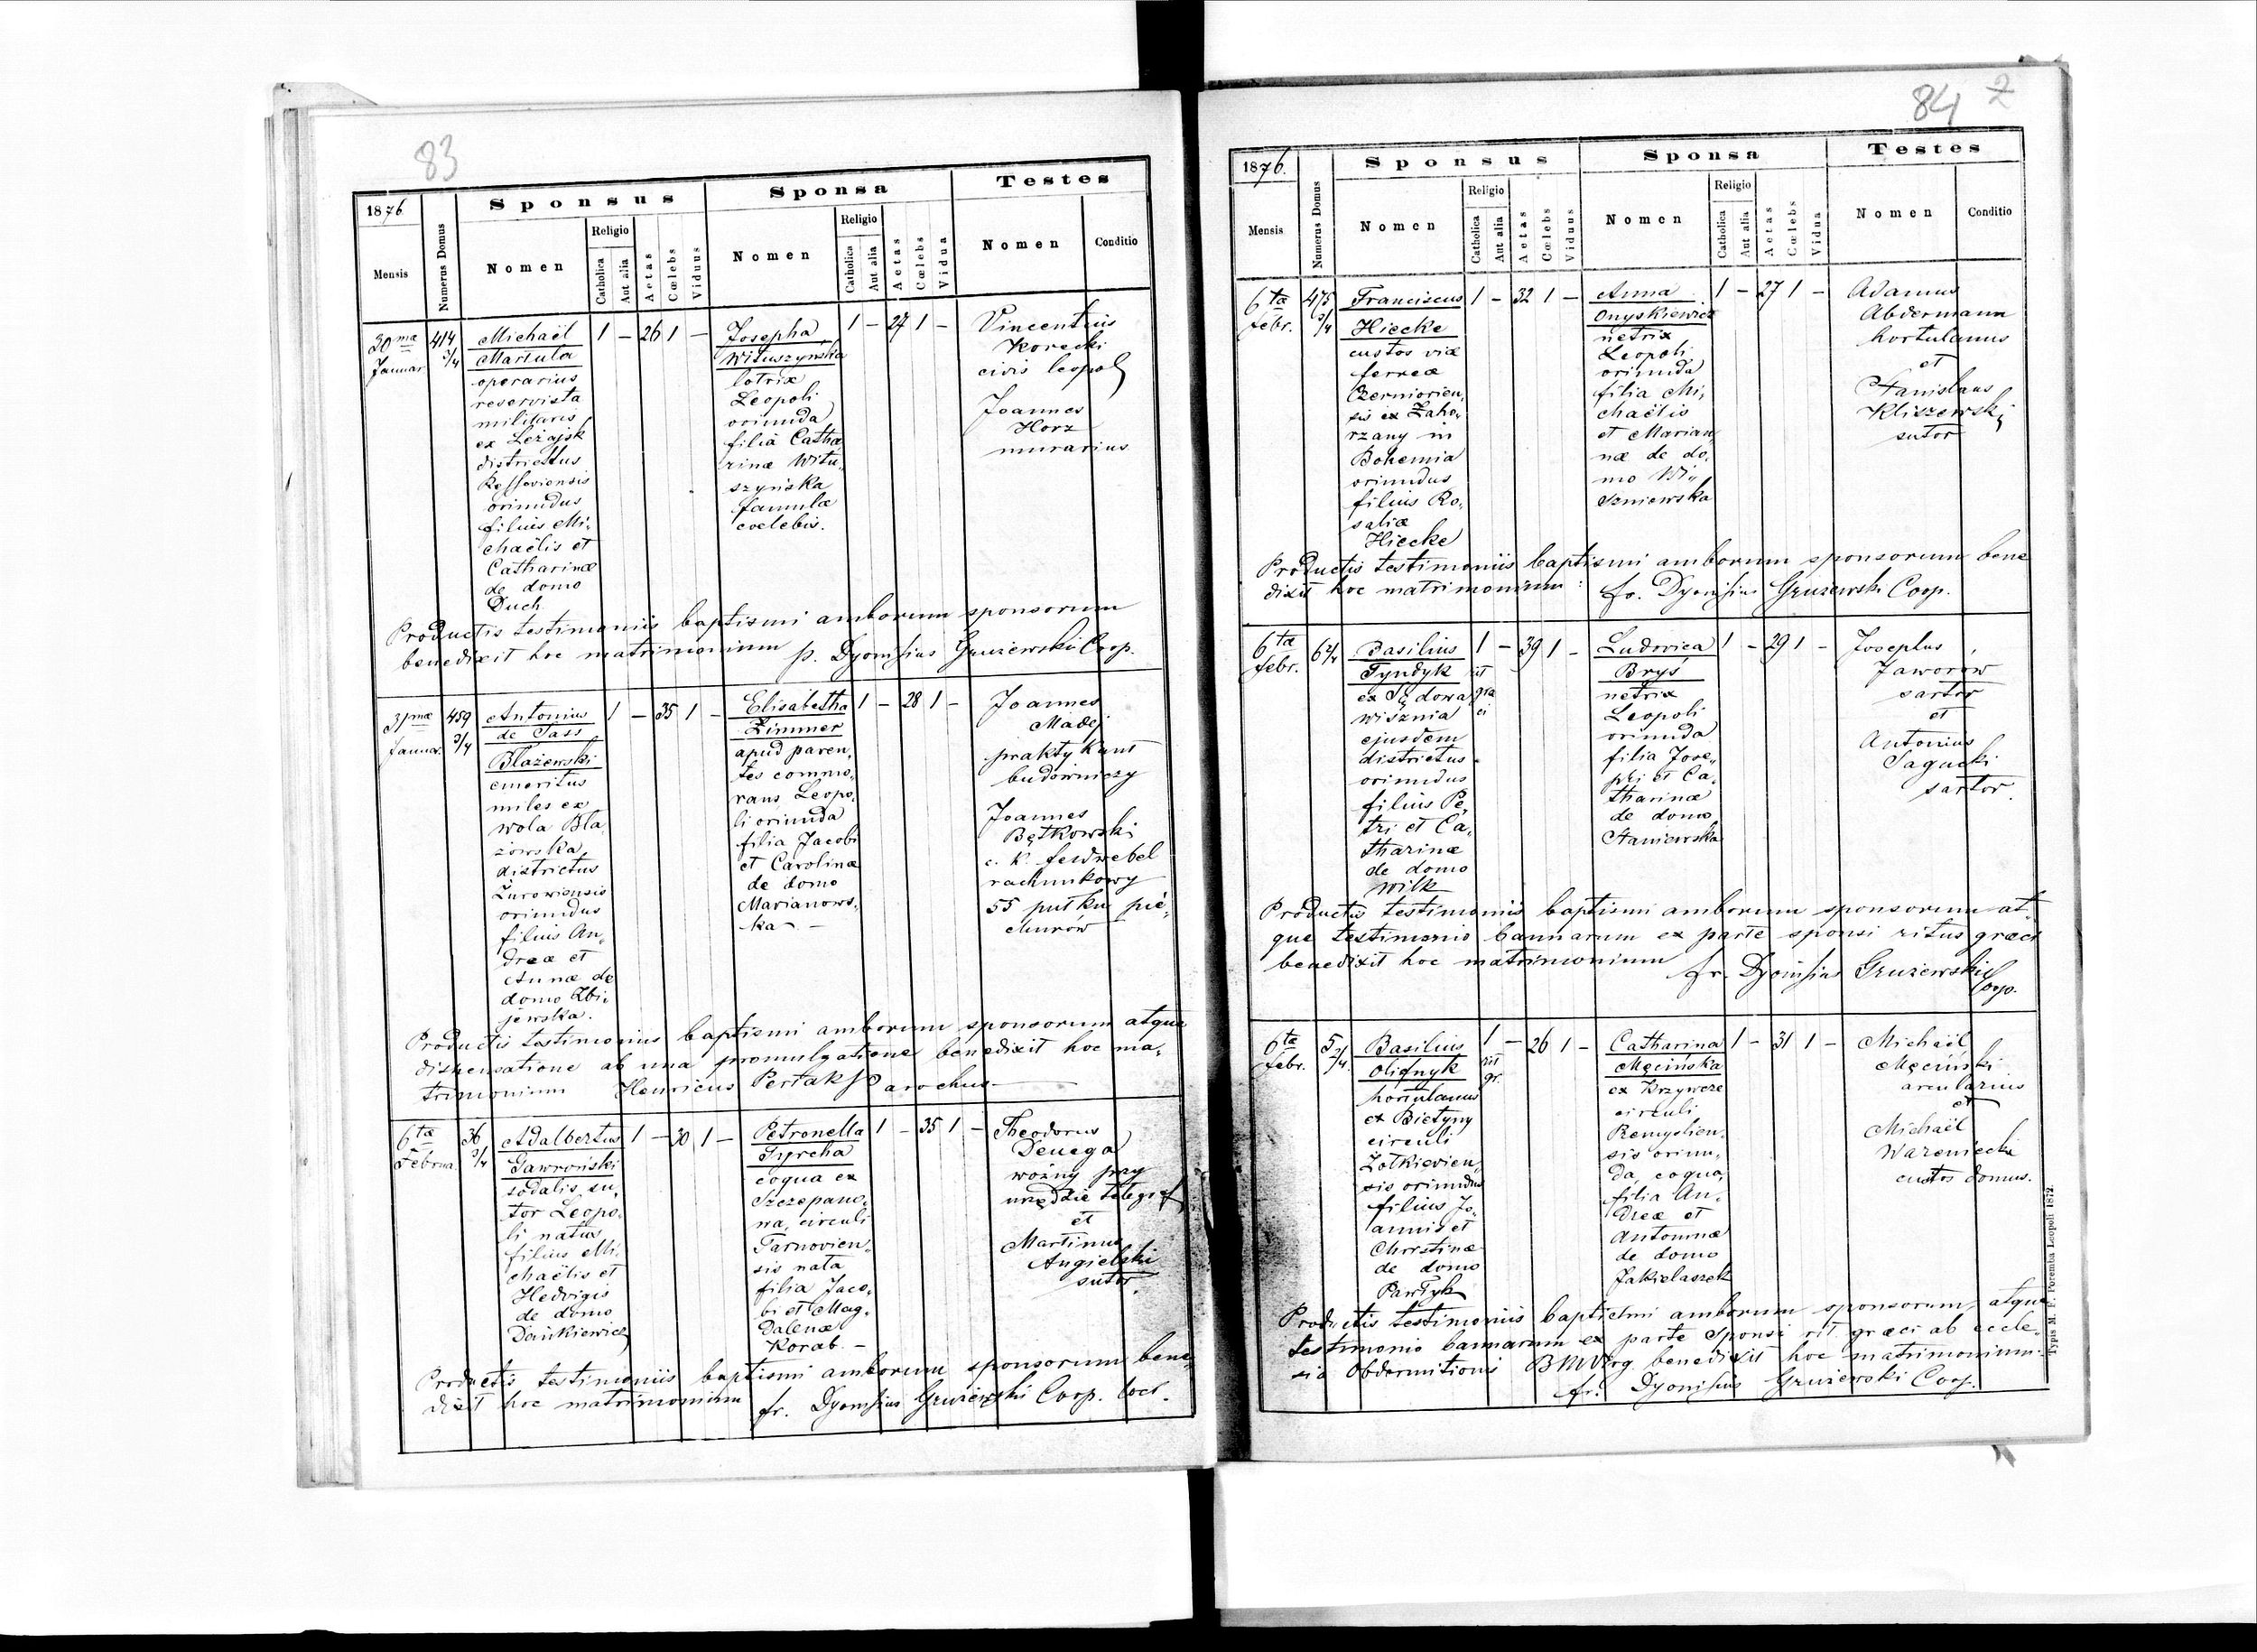 83
1876.
Mensis
Numerus Domus
Sponsus
Nomen
Religio
Catholica
Aut alia
Aetas
Cœlebs
Viduus
Sponsa
Nomen
Religio
Catholica
Aut alia
Aetas
Cœlebs
Vidua
Testes
Nomen
Conditio
30mæ
Januar.
414
3/4
Michaël
Martula
operarius
reservista
militaris
ex Leżajsk
districtus
Ressoviensis
oriundus
filius Mi-
chaëlis et
Catharinæ
de domo
Duch.
1 – 26 1 –
Josepha
Wituszyńska
lotrix
Leopoli
oriunda
filia Catha
rinæ Witu-
szyńska
famulæ
coelebis.
1 – 27 1 –
Vincentius
Korecki
civis leopol
Joannes
Horz
murarius
Productis testimoniis baptismi amborum sponsorum
benedixit hoc matrimonium p. Dyonisius Grużewski Coop.
31mæ
Januar.
459
3/4
Antonius
de Sass
Błażewski
emeritus
miles ex
wola Bła
żowska
districtus
Żurowiensis
oriundus
filius An-
dreæ et
Annæ de
domo Zbi-
jewska.
1 – 35 1 –
Elisabetha
Zimmer
apud paren-
tes commo-
rans Leopo-
li oriunda
filia Jacobi
et Carolinæ
de domo
Marianows-
ka –
1 – 28 1 –
Joannes
Madej
praktykant
budowniczy
Joannes
Bętkowski
c. k. feldwebel
rachunkowy
55 pułku pie-
churów
Productis testimoniis baptismi amborum sponsorum atque
dispensatione ab una promulgatione benedixit hoc ma-
trimonium Henricus Pertak Parochus
6tæ
Februa.
36
3/4
Adalbertus
Gawroński
sodalis su-
tor Leopo-
li natus
filius Mi-
chaëlis et
Hedvigis
de domo
Dankiewicz
1 – 30 1 –
Petronella
Pyrcha
coqua ex
Szczepano-
wa, circuli
Tarnovien-
sis nata
filia Jaco-
bi et Mag-
dalenæ
Korab. –
1 – 35 1 –
Theodorus
Denega
woźny przy
urzędzie telegraf
et
Martinus
Angielski
sutor
Productis testimoniis baptismi amborum sponsorum bene-
dixit hoc matrimonium fr. Dyonisius Grużewski Coop. loci.
84 2
1876.
Mensis
Numerus Domus
Sponsus
Nomen
Religio
Catholica
Aut alia
Aetas
Cœlebs
Viduus
Sponsa
Nomen
Religio
Catholica
Aut alia
Aetas
Cœlebs
Vidua
Testes
Nomen
Conditio
6tæ
Febr.
475
3/4
Franciscus
Hiecke
custos viæ
ferreæ
Czerniovien-
sis ex Zaho-
rzany in
Bohemia
oriundus
filius Ro-
saliæ
Hiecke
1 – 32 1 –
Anna
Onyskiewicz
netrix
Leopoli
oriunda
filia Mi-
chaëlis
et Marian
næ de do-
mo Wi-
szniewska
1 – 27 1 –
Adamus
Abdermann
hortulanus
et
Stanislaus
Kliszewski
sutor
Productis testimoniis baptismi amborum sponsorum bene
dixit hoc matrimonium: fr. Dyonisius Grużewski Coop.
6tæ
Febr.
6 2/4
Basilius
Tyndyk
ex Sądowa
wisznia
ejusdem
districtus
oriundus
filius Pe-
tri et Ca-
tharinæ
de domo
Wilk
1 – 39 1 –
rit
græ
ci
Ludovica
Bryś
netrix
Leopoli
oriunda
filia Jose-
phi et Ca-
tharinæ
de domo
Staniewska
1 – 29 1 –
Josephus
Jaworów
sartor
et
Antonius
Sagucki
sartor.
Productis testimoniis baptismi amborum sponsorum at-
que testimonio bannarum ex parte sponsi ritus græci
benedixit hoc matrimonium
fr. Dyonisius Grużewski Coop.
6tæ
Febr.
5 2/4
Basilius
Olijnyk
hortulanus
ex Bietyny
circuli
Żołkievien-
sis oriundus
filius Jo-
annis et
Christinæ
de domo
Pawłyk
1 – 26 1 –
rit
gr.
Catharina
Męcińska
ex Krzywcze
circuli
Przemyslien-
sis oriun-
da, coqua,
filia An-
dreæ et
Antoninæ
de domo
Jakielaszek
1 – 31 1 –
Michaël
Męciński
arcularius
et
Michaël
Wareniecki
custos domus.
Productis testimoniis baptismi amborum sponsorum, atque
testimonio bannarum ex parte Sponsi rit. græci ab eccle-
sia Obdormitionis BMVirg. benedixit hoc matrimonium.
fr. Dyonisius Grużewski Coop.
Typis M. F. Poremba Leopoli 1872.